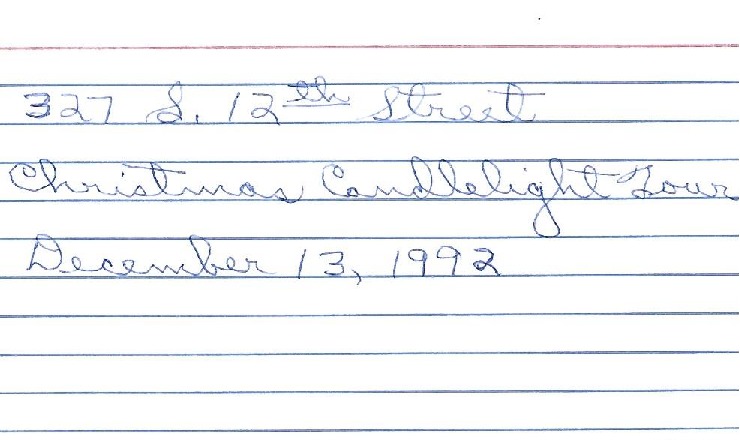 327 S. 12th Street
Christmas Candlelight Tour
December 13, 1992